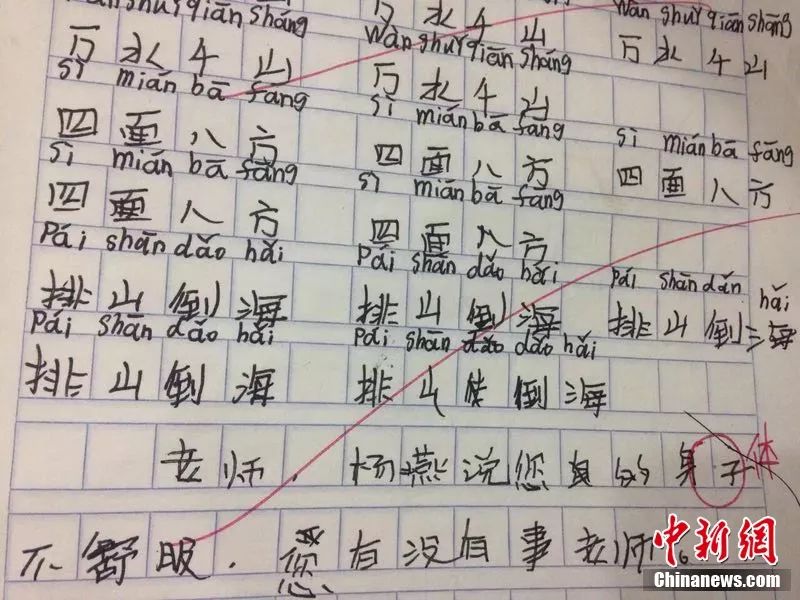 shuǐ qiān shāng 万水千山 wàn shuǐ qiān shāng
万水千山 wàn shuǐ qiān shāng 万水千山
sì miàn bā fāng 万水千山
四面八方 sì mián bā fang sì mián bā fāng
sì mián bā fāng 四面八方 四面八方
四面八方 sì mián bā fang
Pái shān dǎo hǎi 四面八方
排山倒海 Pái shān dǎo hǎi Pái shān dǎn hǎi
Pái shān dǎo hǎi 排山倒海 排山倒海
排山倒海 Pái shān dǎo dǎo hǎi
排山倒海
老师.杨燕说您的身子体
不舒服.您有没有事老师。
中新网
Chinanews.com